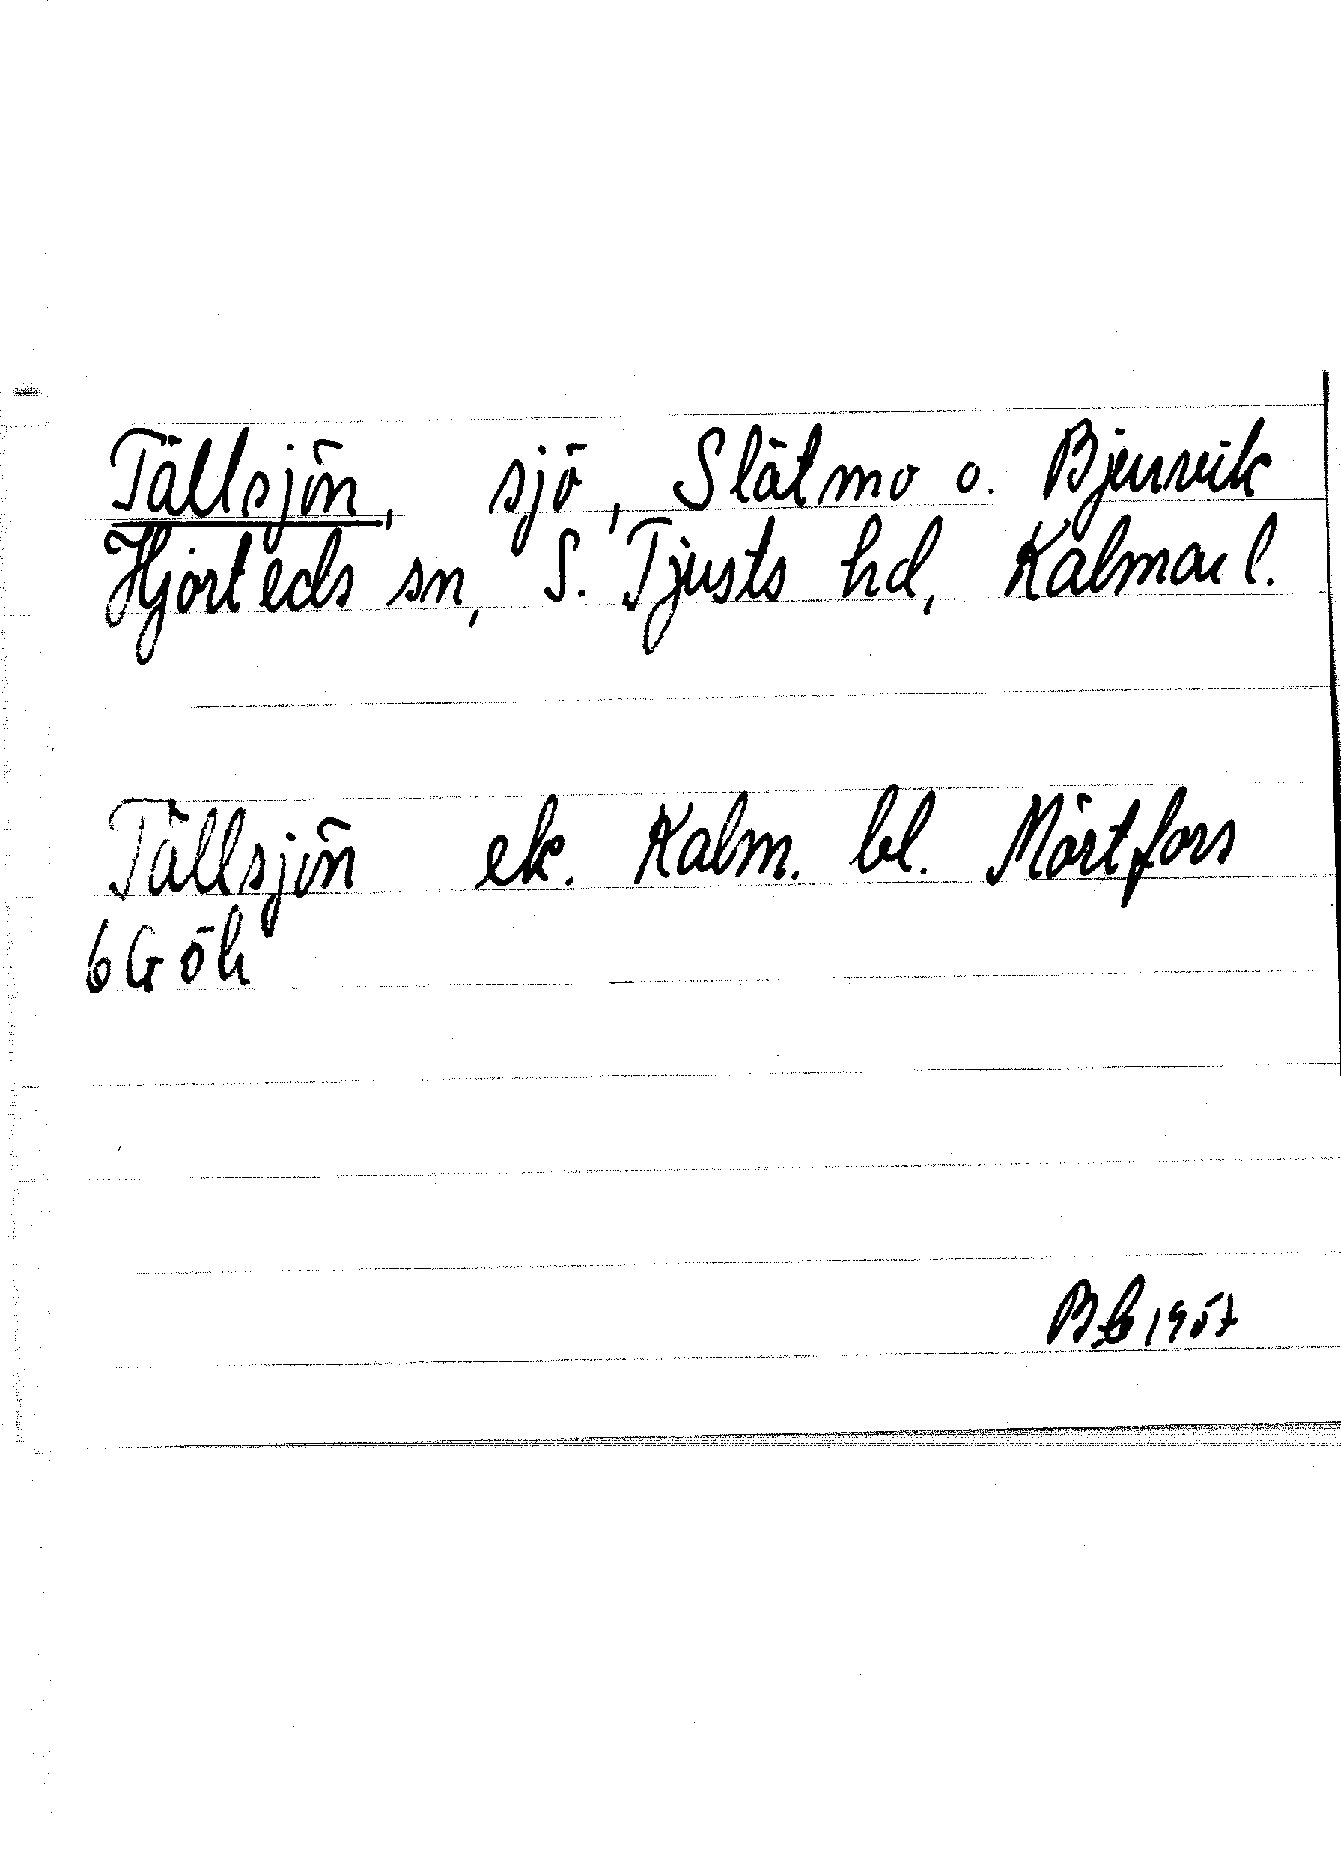 Tällsjön, sjö, Slätmo o. Bjursvik
Hjorteds sn, S. Tjusts hd, Kalmar l.
Tällsjön ek. Kalm. bl. Mörtfors
6G öh
1957